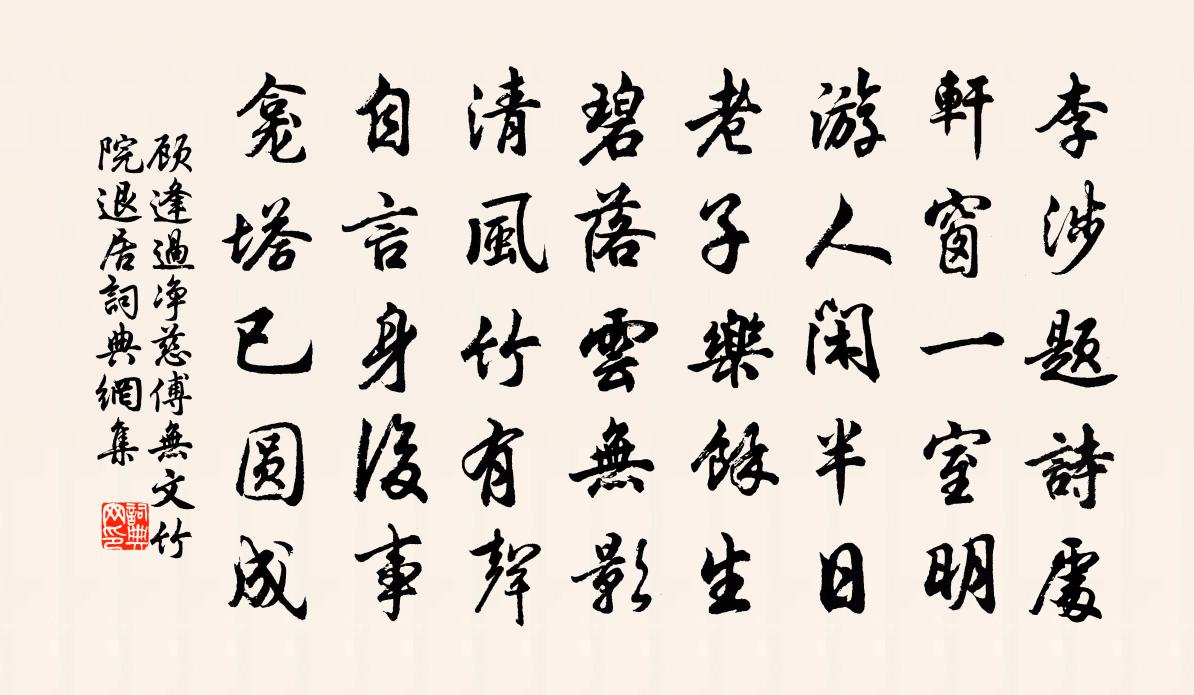 李涉題詩處
軒窗一室明
游人閑半日
老子樂餘生
碧落雲無影
清風竹有聲
自言身後事
龕塔已圆成
顾逢過净慈傅無文竹
院退居詞典網集
詞典
网印